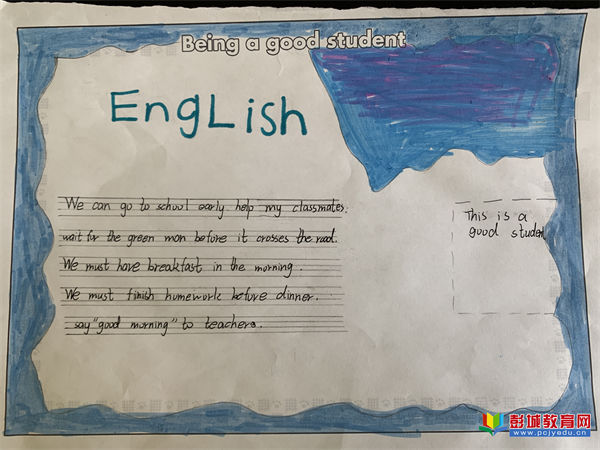 Being a good student
EngLish
We can go to school early. help my classmates.
wait for the green man before it crosses the road.
We must have breakfast in the morning.
We must finish homework before dinner.
say "good morning" to teachers.
This is a
good student
彭城教育网
www.pcjyedu.cn